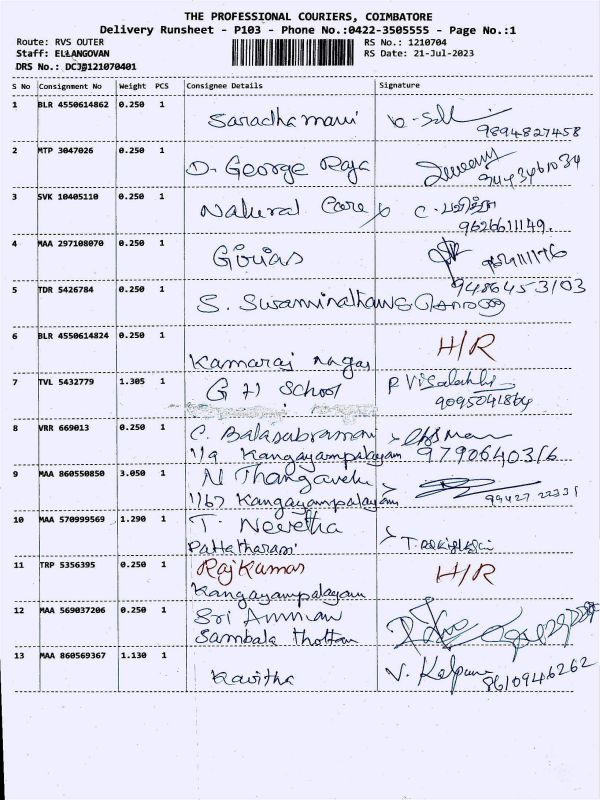 THE PROFESSIONAL COURIERS, COIMBATORE
Delivery Runsheet - P103 - Phone No.:0422-3505555 - Page No.:1
Route: RVS OUTER RS No.: 1210704
Staff: ELLANGOVAN RS Date: 21-Jul-2023
DRS No.: DCJ#121070401
S No Consignment No Weight PCS Consignee Details Signature
1 BLR 4550614862 0.250 1 Saradhamani
9894827458
2 MTP 3047026 0.250 1 D. George Raja
9443461034
3 SVK 10405110 0.250 1 Natural Care
9626611149.
4 MAA 297108070 0.250 1 Girias
5 TDR 5426784 0.250 1 9486453103
S. Swaminathan
6 BLR 4550614824 0.250 1 H/R
Kamaraj nagar
7 TVL 5432779 1.305 1 G H School P. Visalakshi
9095041864
8 VRR 669013 0.250 1 C. Balasubramani
1/9 Kangayampalayam 9790640316
9 MAA 860550850 3.050 1 N Thangavelu
1/67 Kangayampalayam 99427 22331
10 MAA 570999569 1.290 1 T. Neevetha
Pattatharasi
11 TRP 5356395 0.250 1 Rajkumar H/R
Kangayampalayam
12 MAA 569037206 0.250 1 Sri Amman
Sambala thottam
13 MAA 860569367 1.130 1 Kavitha V. Kalpana
8610946262